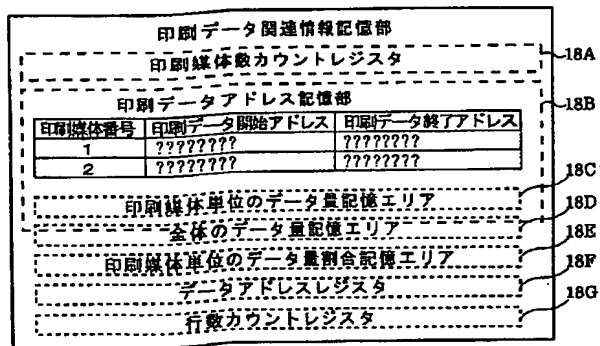 印刷データ関連情報記憶部
印刷媒体数カウントレジスタ
18A
印刷データアドレス記憶部
18B
印刷媒体番号 印刷データ開始アドレス 印刷データ終了アドレス
1 ???????? ????????
2 ???????? ????????
18C
印刷媒体単位のデータ量記憶エリア
18D
全体のデータ量記憶エリア
18E
印刷媒体単位のデータ量割合記憶エリア
18F
データアドレスレジスタ
18G
行数カウントレジスタ